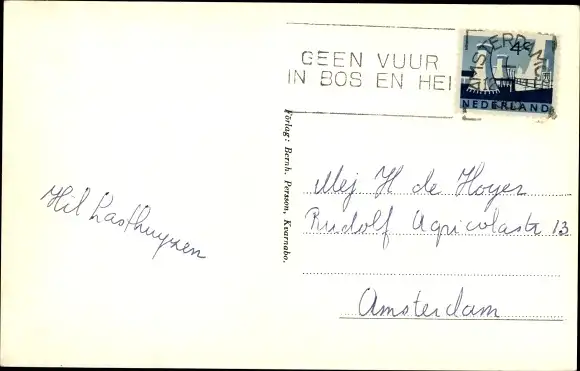 GEEN VUUR
IN BOS EN HEI
AMSTERDAM
4c
NEDERLAND
Förlag: Bernh. Persson, Kvarnabo.
Hil Lasthuyzen
Mej H de Hoyer
Rudolf Agricolastr 13
Amsterdam